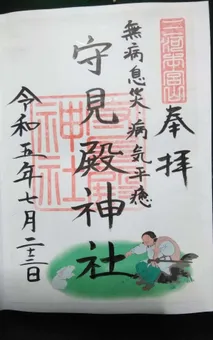 奉拝
無病息災 病気平癒
守見殿神社
令和五年七月二十三日